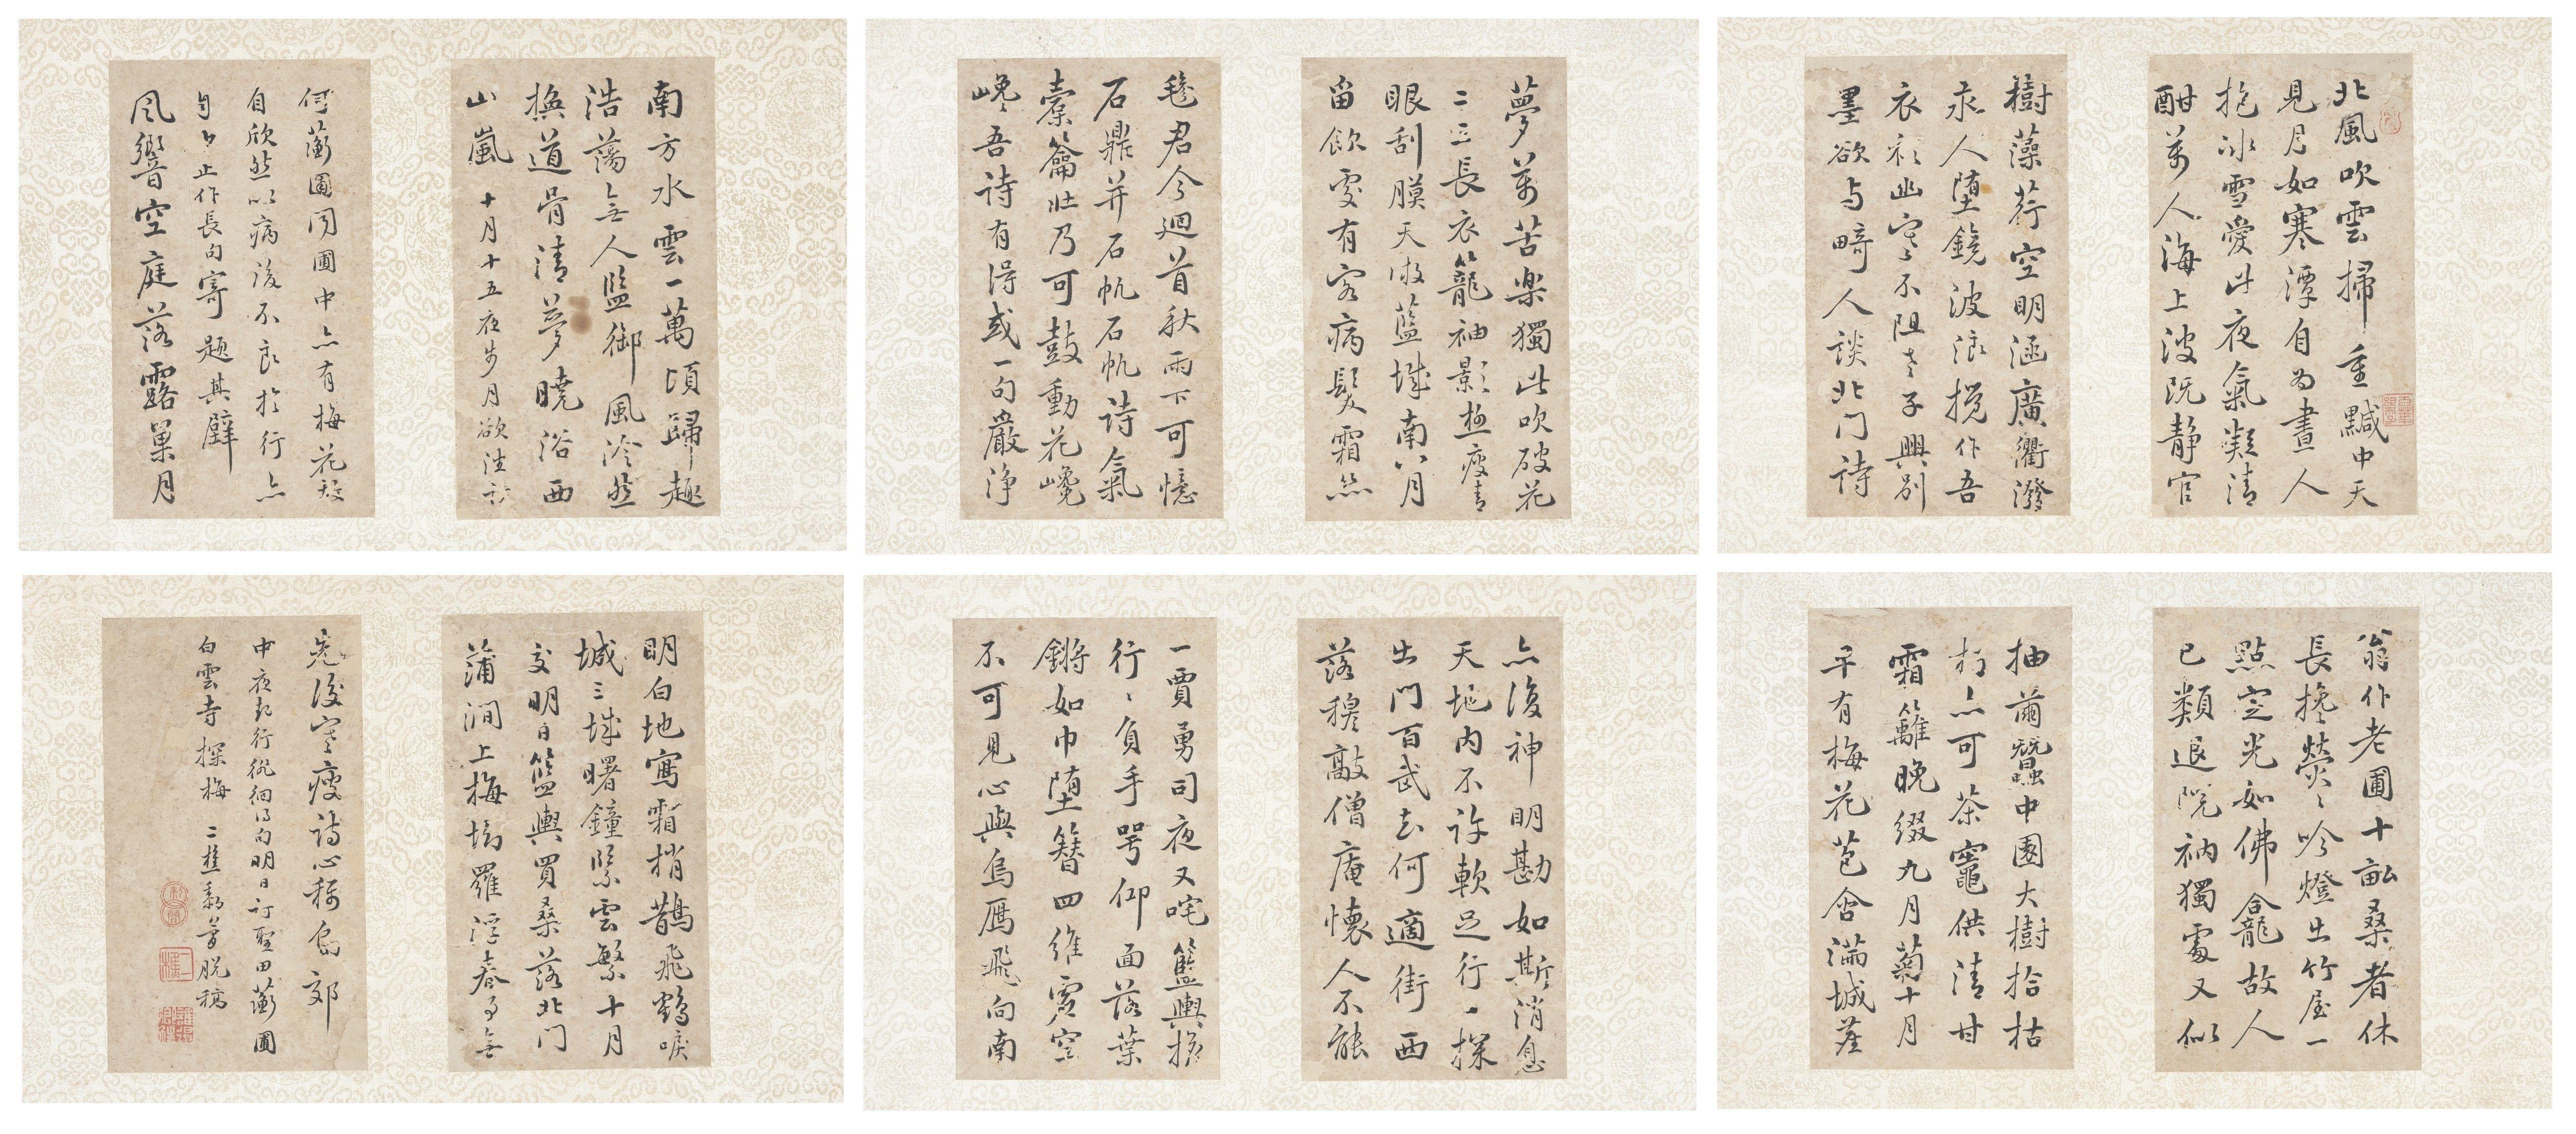 北風吹雲掃重黬中天
見月如寒潭自為晝人
抱冰雪愛此夜氣凝清
酣萬人海上波既靜官
樹藻荇空明涵廣衢潑
汞人墮鏡波浪攪作吾
衣衫幽寒不阻之子興別
墨欲与畸人談北门詩
夢萬苦樂獨此吹破花
二三長衣籠袖影極瘦青
眼刮膜天澂藍城南八月
留飲處有客病髮霜絲
毿君今迴首秋雨下可憶
石鼎并石帆石帆詩氣
橐籥壯乃可鼓動花巉
巉吾詩有得或一句嚴淨
南方水雲一萬頃歸趣
浩蕩無人監御風泠然
換道骨清夢曉浴西
山嵐 十月十五夜步月欲往訪
何蘅圃聞圃中亦有梅花輒
自欣然以病後不良於行亦
自
止作長句寄題其壁
風響空庭落露巢月
翁作老圃十畝桑者休
長攙熒〻吟燈出竹屋一
點定光如佛龕故人
已類退院衲獨處又似
抽繭蠶中園大樹拾枯
朽亦可茶竈供清甘
霜籬晚綴九月菊十月
平有梅花苞含滿城蓋
亦復神明勘如斯消息
天地內不許軟足行〻探
出門百武去何適街西
落穆敲僧庵懷人不能
一賈勇司夜又咤籃輿搖
行〻負手咢仰面落葉
鏘如巾墮簪四維虛空
不可見心與烏鴈飛向南
明白地寫霜梢鵲飛鶴唳
城三城曙鐘緊雲繁十月
交明日籃輿買桑落北門
蒲澗上梅樹羅浮春事無
先後寒瘦詩心稱島郊
中夜起行徘徊得句明日訂聖田蘅圃
白雲寺探梅 二樵黎簡脫稿
二樵